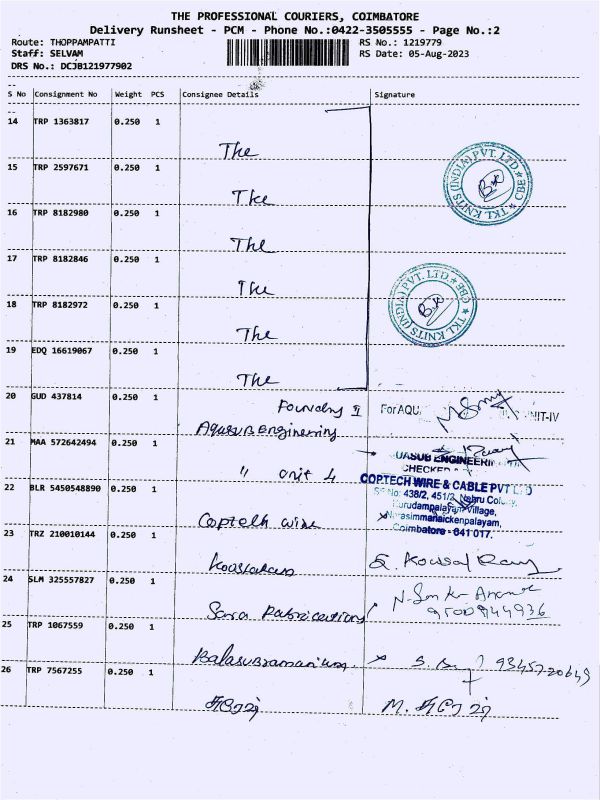 THE PROFESSIONAL COURIERS, COIMBATORE
Delivery Runsheet - PCM - Phone No.:0422-3505555 - Page No.:2
Route: THOPPAMPATTI RS No.: 1219779
Staff: SELVAM RS Date: 05-Aug-2023
DRS No.: DCJB121977902
S No Consignment No Weight PCS Consignee Details Signature
14 TRP 1363817 0.250 1
The
15 TRP 2597671 0.250 1
The
16 TRP 8182980 0.250 1
The
TKL KNITS (INDIA) PVT. LTD. CBE
17 TRP 8182846 0.250 1
The
18 TRP 8182972 0.250 1
The
TKL KNITS (INDIA) PVT. LTD. CBE
19 EDQ 16619067 0.250 1
The
20 GUD 437814 0.250 1
Foundry II For AQU
Aquasub engineering
21 MAA 572642494 0.250 1
UASUB ENGINEERIN
CHECKED
" unit 4
COPTECH WIRE & CABLE PVT LTD
22 BLR 5450548890 0.250 1
No: 438/2, 451/2, Nehru Colony,
Kurudampalayam Village,
Narasimmanaickenpalayam,
Coimbatore - 641 017.
Coptech wire
23 TRZ 210010144 0.250 1
24 SLM 325557827 0.250 1
Sara Fabrications
25 TRP 1067559 0.250 1
Balasubramanium
26 TRP 7567255 0.250 1